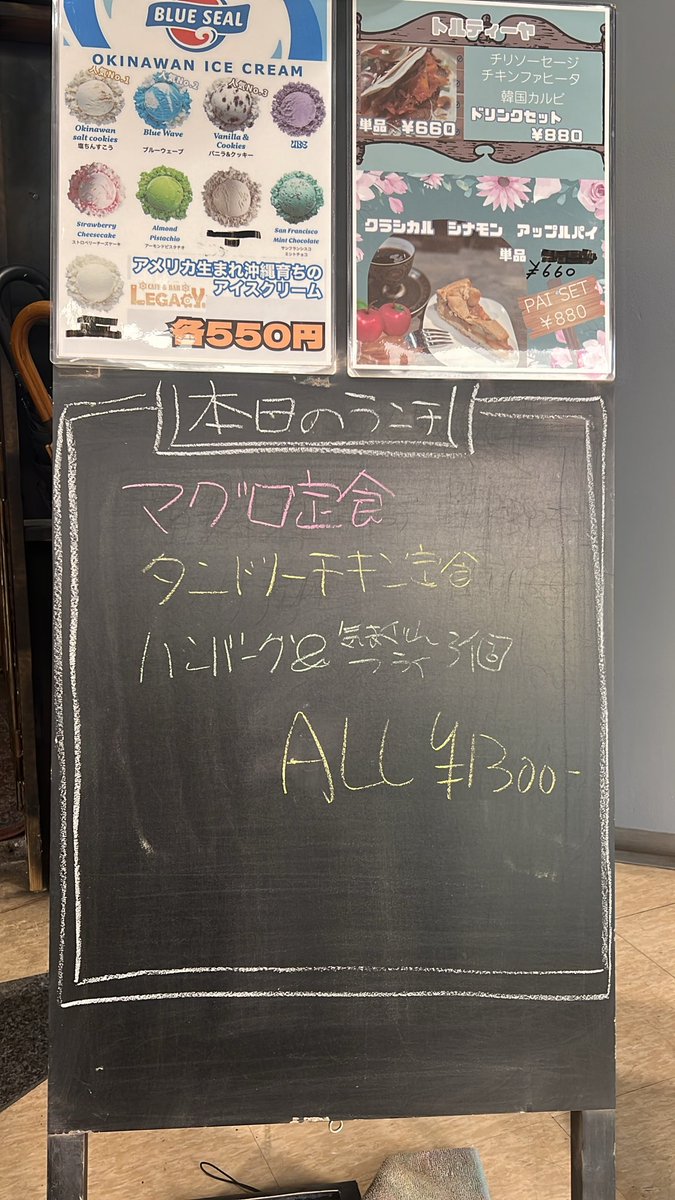 BLUE SEAL
OKINAWAN ICE CREAM
人気No.1
人気No.2
人気No.3
Okinawan
salt cookies
塩ちんすこう
Blue Wave
ブルーウェーブ
Vanilla &
Cookies
バニラ&クッキー
Strawberry
Cheesecake
ストロベリーチーズケーキ
Almond
Pistachio
アーモンドピスタチオ
San Francisco
Mint Chocolate
サンフランシスコ
ミントチョコ
アメリカ生まれ沖縄育ちの
アイスクリーム
CAFE & BAR
LEGACY
各550円
トルティーヤ
チリソーセージ
チキンファヒータ
韓国カルビ
単品 ¥660
ドリンクセット
¥880
クラシカル シナモン アップルパイ
単品
¥660
PAI SET
¥880
本日のランチ
マグロ定食
タンドリーチキン定食
ハンバーグ& 気まぐれ
フライ 3個
ALL ¥1300-